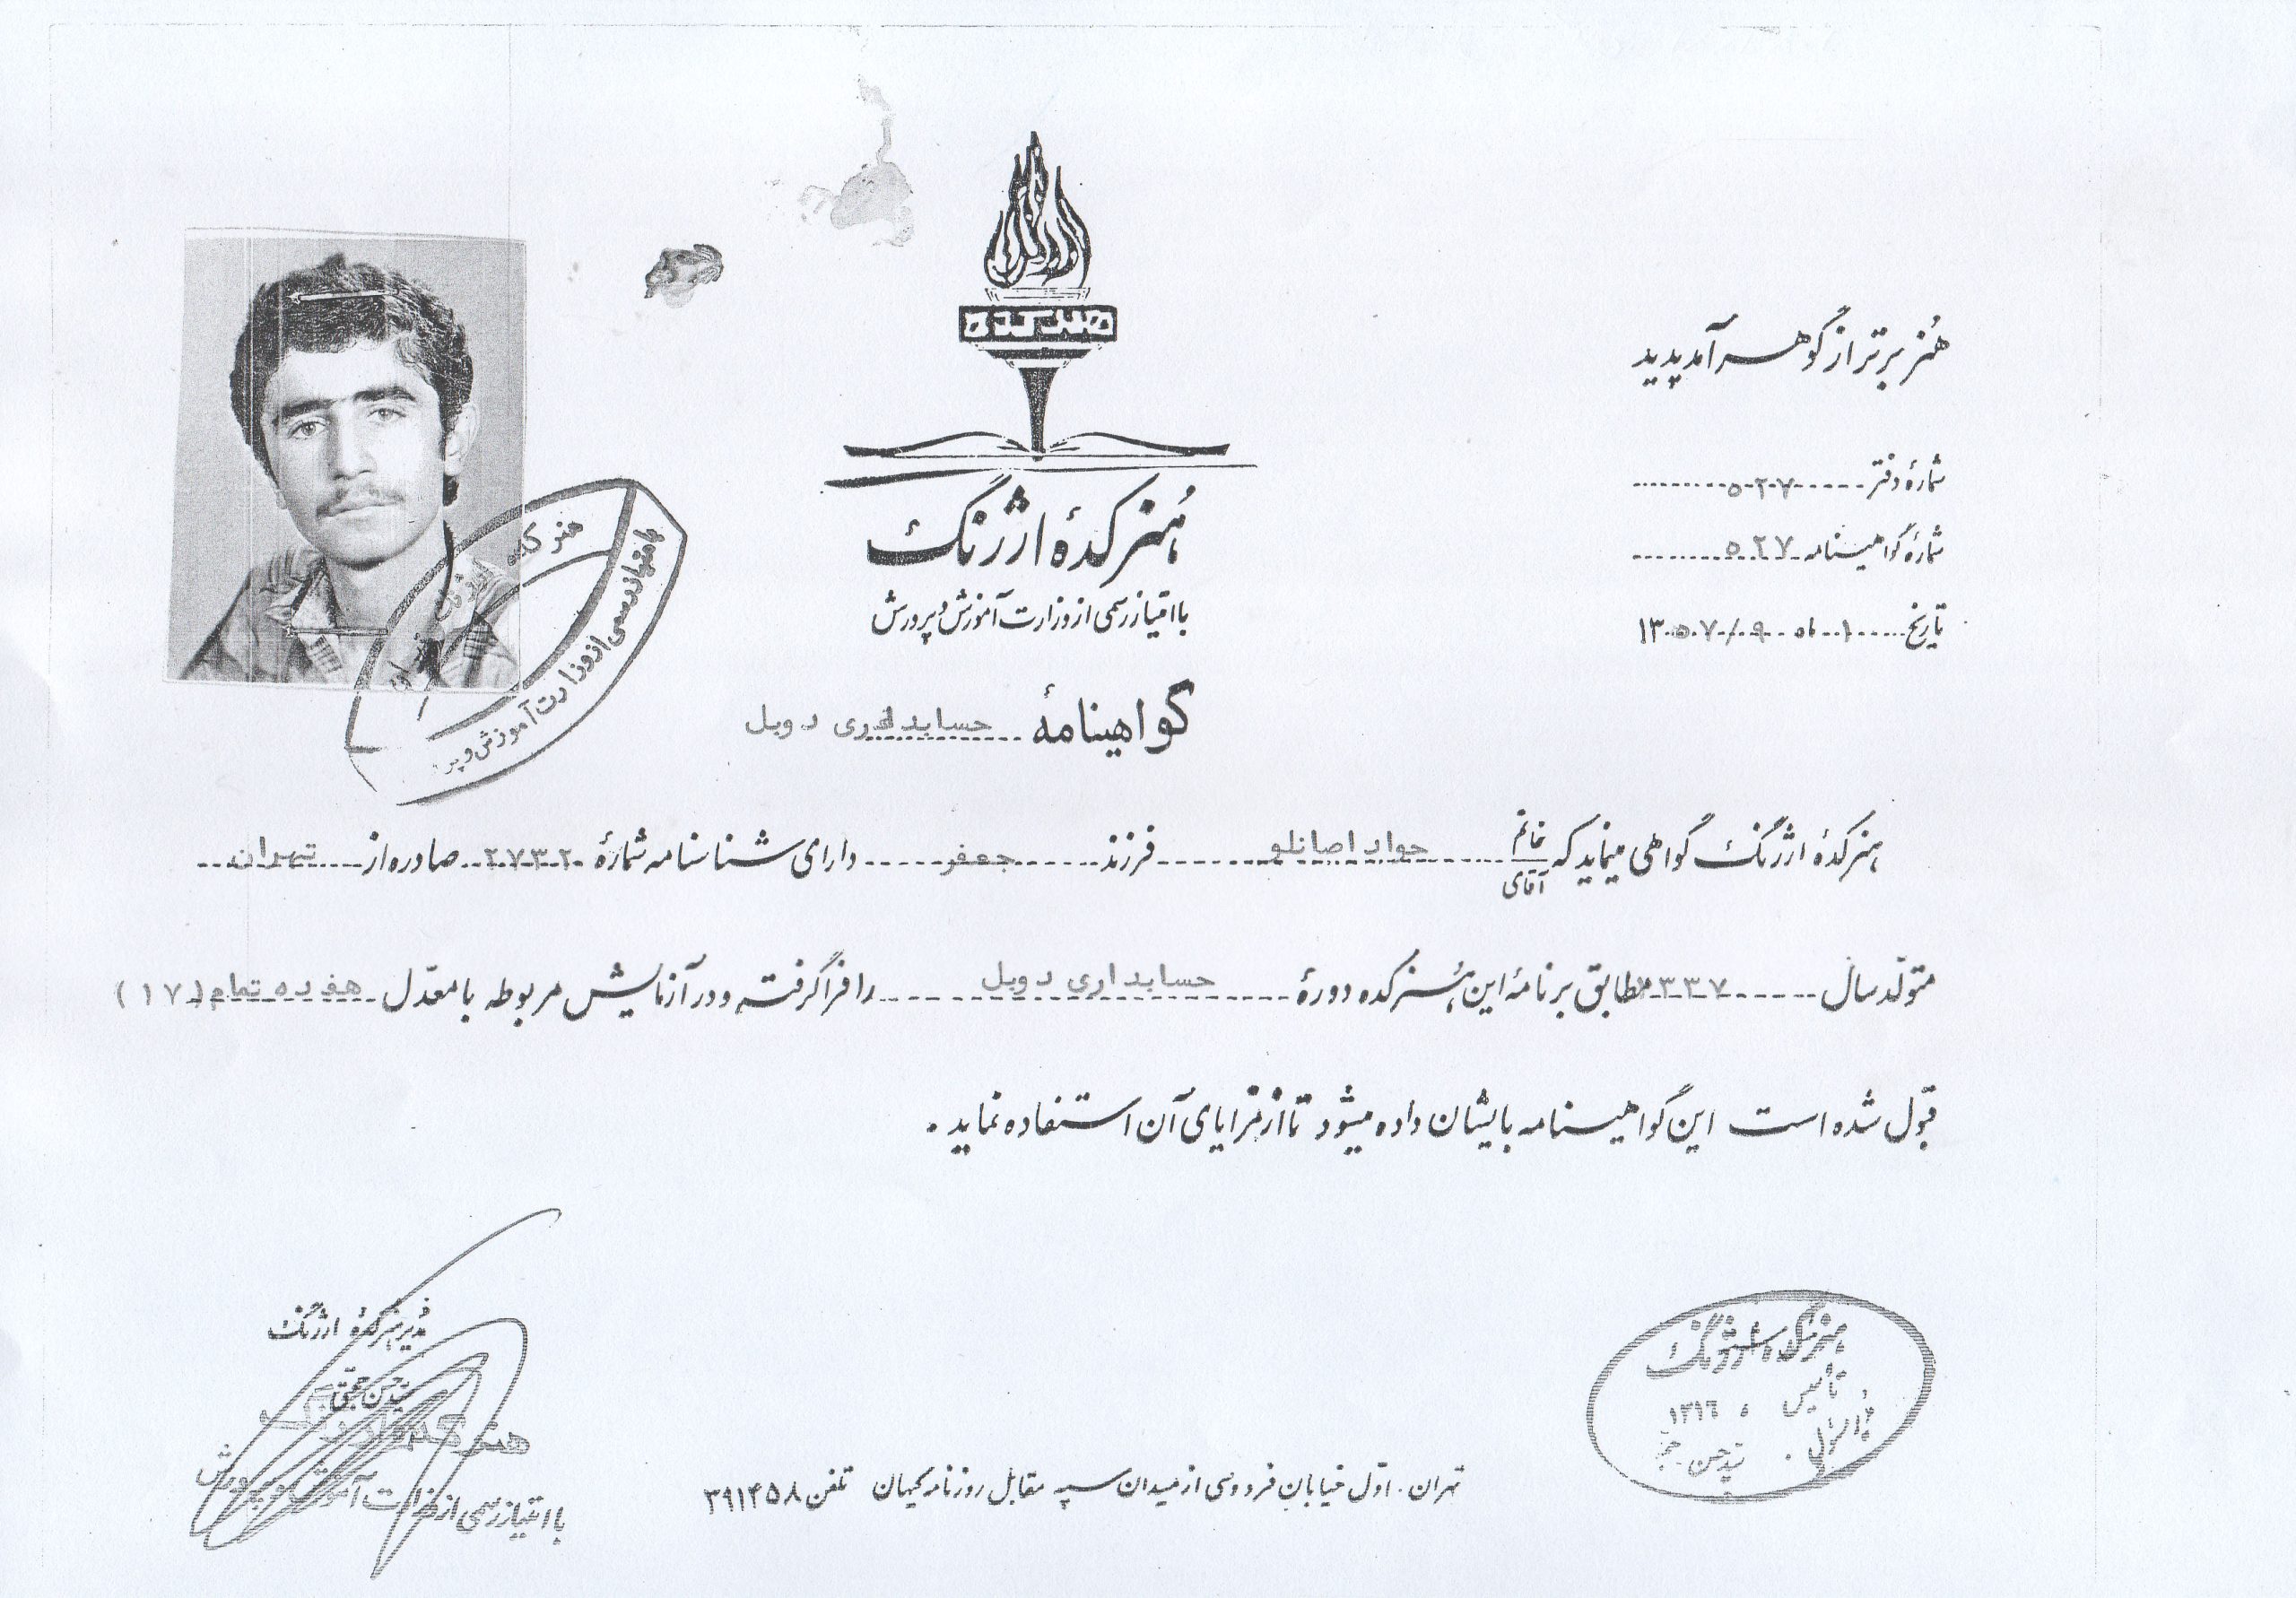 هنر برتر از گوهر آمد پدید
شمارهٔ دفتر ۵۲۷
شمارهٔ گواهینامه ۵۲۷
تاریخ ۱۰ ماه ۹/ ۱۳۵۷
هنرکده
هنرکدهٔ ارژنگ
با امتیاز رسمی از وزارت آموزش و پرورش
گواهینامهٔ حسابداری دوبل
هنرکدهٔ ارژنگ گواهی مینماید که خانم آقای جواد اصانلو فرزند جعفر دارای شناسنامه شمارهٔ ۲۷۳۲۰ صادره از تهران
متولد سال ۳۳۷ مطابق برنامهٔ این هنرکده دورهٔ حسابداری دوبل را فرا گرفته و در آزمایش مربوطه با معدّل هفده تمام (۱۷)
قبول شده است این گواهینامه بایشان داده میشود تا از مزایای آن استفاده نماید.
هنرکده ارژنگ
با امتیاز رسمی از وزارت آموزش و پر
مدیر هنرکدهٔ ارژنگ
سید حسن حجتی
هنرکده ارژنگ
با امتیاز رسمی از وزارت آموزش و پرورش
هنرکده ارژنگ
تأسیس ۱۳۱۶
سید حسن
تهران. اوّل خیابان فردوسی از میدان سپه مقابل روزنامه کیهان تلفن ۳۹۱۴۵۸